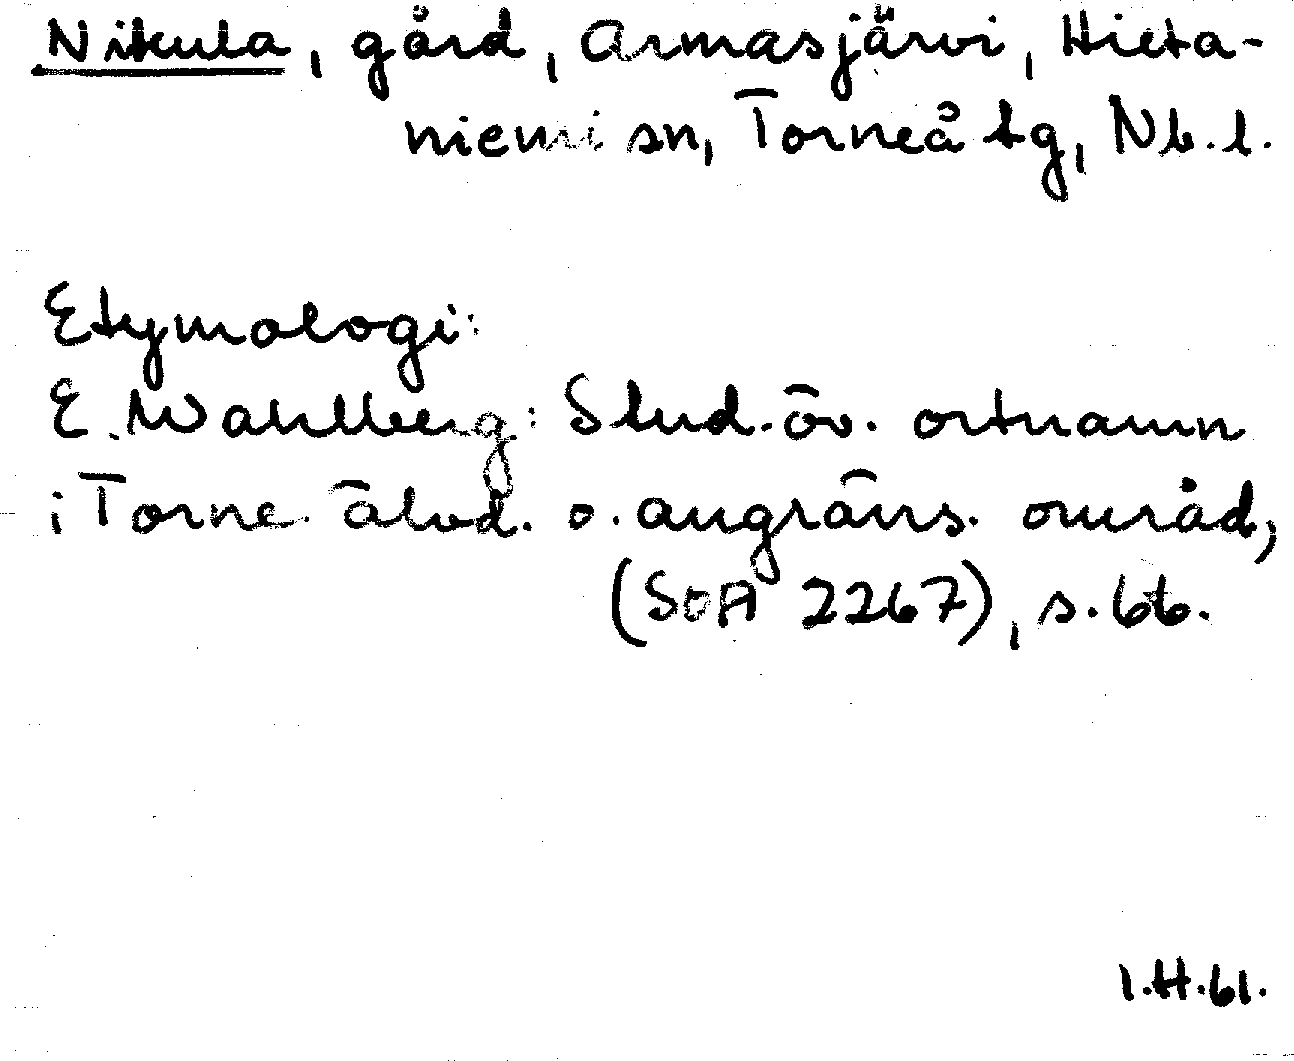 Nikula, gård, Armasjärvi, Hieta-
niemi sn, Torneå tg, Nb.l.
Etymologi:
E. Wahlberg: Stud. öv. ortnamn
i Torne älvd. o. angräns. områd,
(SOA 2267), s. 66.
I.H.61.